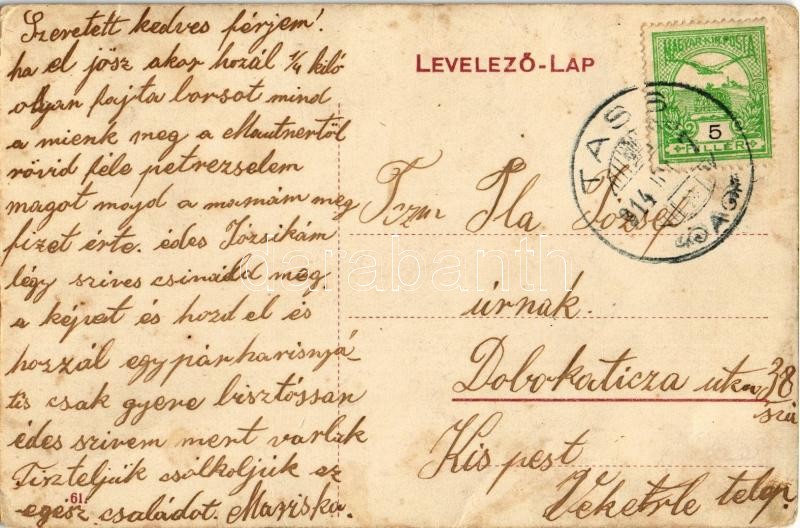 Szeretett kedves férjem!
ha el jösz akor hozál 1/4 kiló
olyan fajta borsot mind
a mienk meg a Mautnertöl
rövid féle petrezselem
magot majd a mamám meg
fizet érte. édes Józsikám
légy szives csináld meg
a képet és hozd el és
hozzál egy pár harisnyá-
tis csak gyere bisztossan
édes szivem mert varlak
Tiszteljük csólkoljuk ez
egész családot. Mariska.
61.
LEVELEZŐ-LAP
MAGYAR KIR. POSTA
5
FILLÉR
TASS
914
Tzm Pla József
úrnak.
Dobokaticza utca 38
szá
Kis pest
Vekerle telep.
darabanth